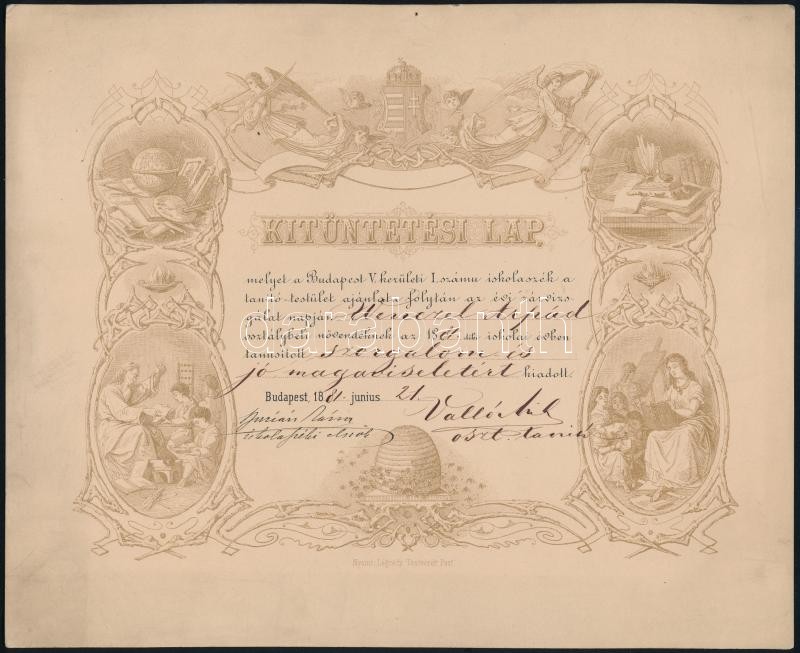 KITÜNTETÉSI LAP,
melyet a Budapest V. kerületi I. számu iskolaszék a
tanitó-testület ajánlata folytán az évi zárvizs-
gálat napján Wenczel Árpád
osztálybeli növendéknek az 188 iskolai évben
tanusitott szorgalom és
jó magaviseletért kiadott.
Budapest, 1881. junius 21.
iskolaszéki elnök Valló
oszt. tanitó
Nyomt. Légrády Testvérek Pest
darabanth